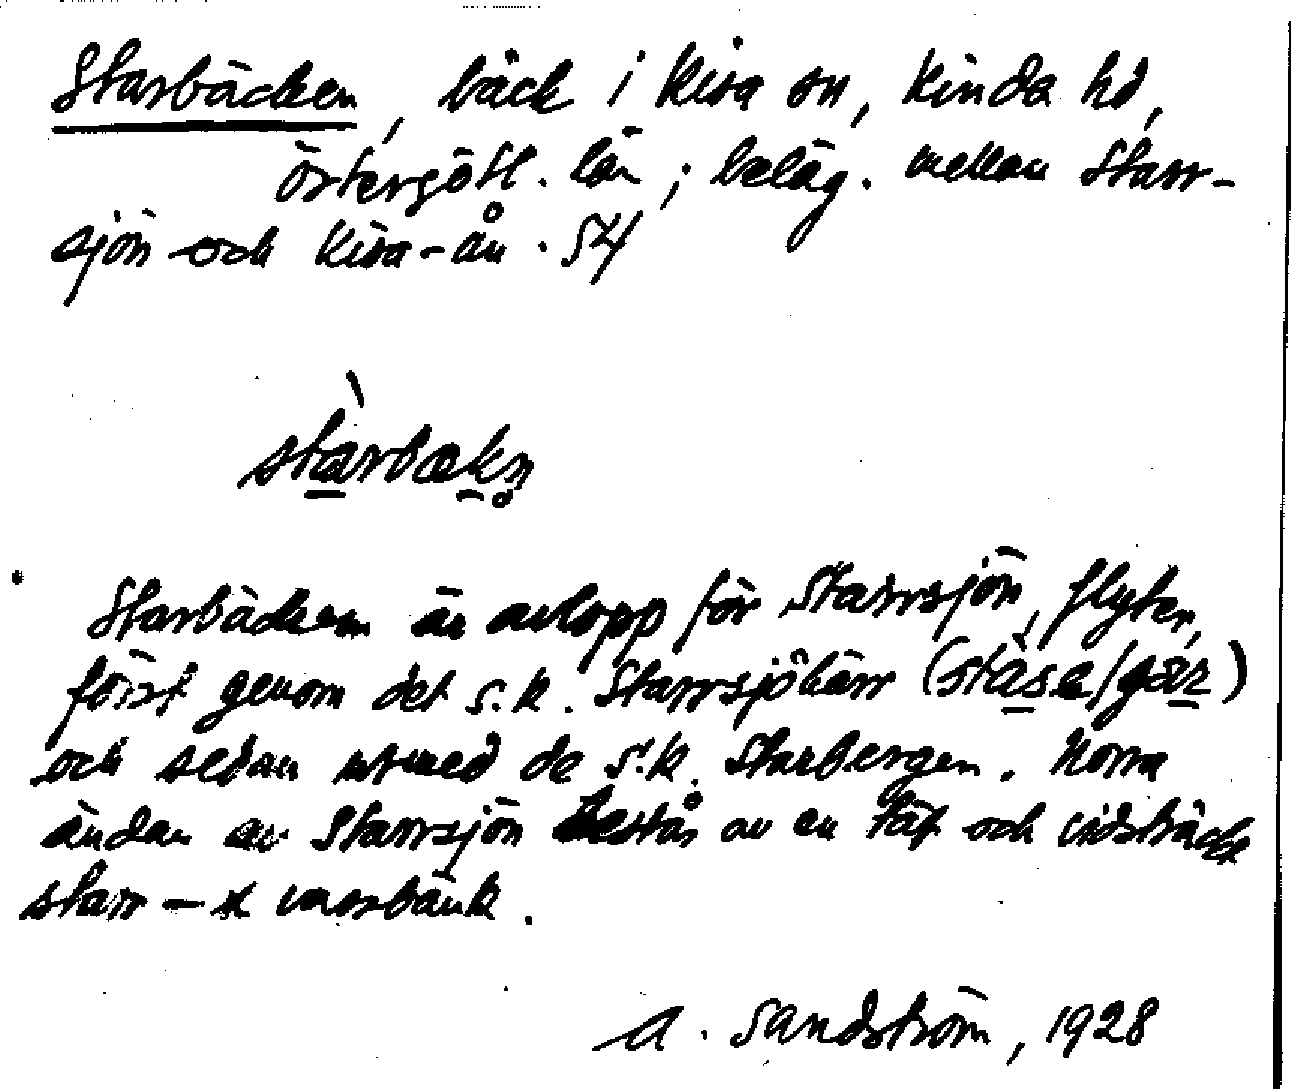 Starbäcken, bäck i Kisa sn, Kinda hd,
Östergötl. län; beläg. mellan Starr-
sjön och Kisa-ån. 54
stàrbækn̥
Starbäcken är avlopp för Starrsjön, flyter,
först genom det s.k. Starrsjökärr
och sedan utmed de s.k. Starbergen. Norra
ändan av Starrsjön består av en tät och vidsträckt
starr- & vassbänk.
A. Sandström, 1928